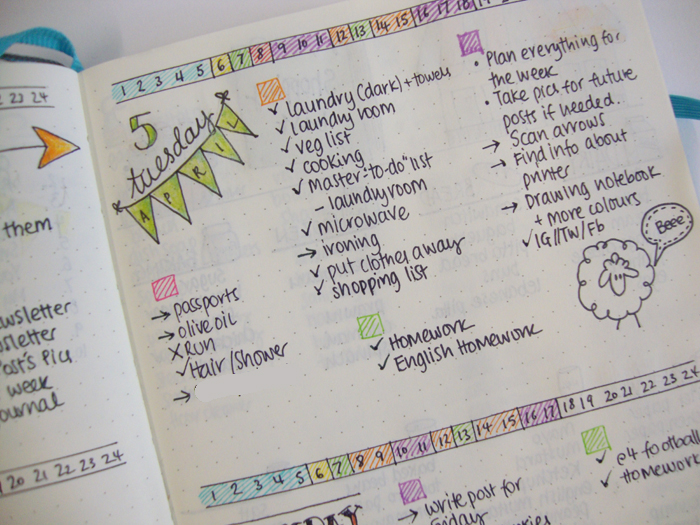 23 24
them
Newsletter
week
20 21 22 23 24
1 2 3 4 5 6 7 8 9 10 11 12 13 14 15 16 17 18 19
5
tuesday
APRIL
✓ laundry (dark) + towels
✓ laundry room
✓ veg list
✓ cooking
✓ Master "to-do" list
- laundry room
✓ microwave
→ ironing
✓ put clothes away
✓ shopping list
• Plan everything for
the week
• Take pics for future
posts if needed.
→ Scan arrows
→ Find info about
printer
→ Drawing notebook
+ more colours
✓ IG//TW/Fb
Beee!
→ passports
→ olive oil
X Run
✓ Hair/Shower
→
✓ Homework
✓ English Homework
1 2 3 4 5 6 7 8 9 10 11 12 13 14 15 16 17 18 19 20 21 22 23 24
→ write post for
✓ e4 football
✓ Homework